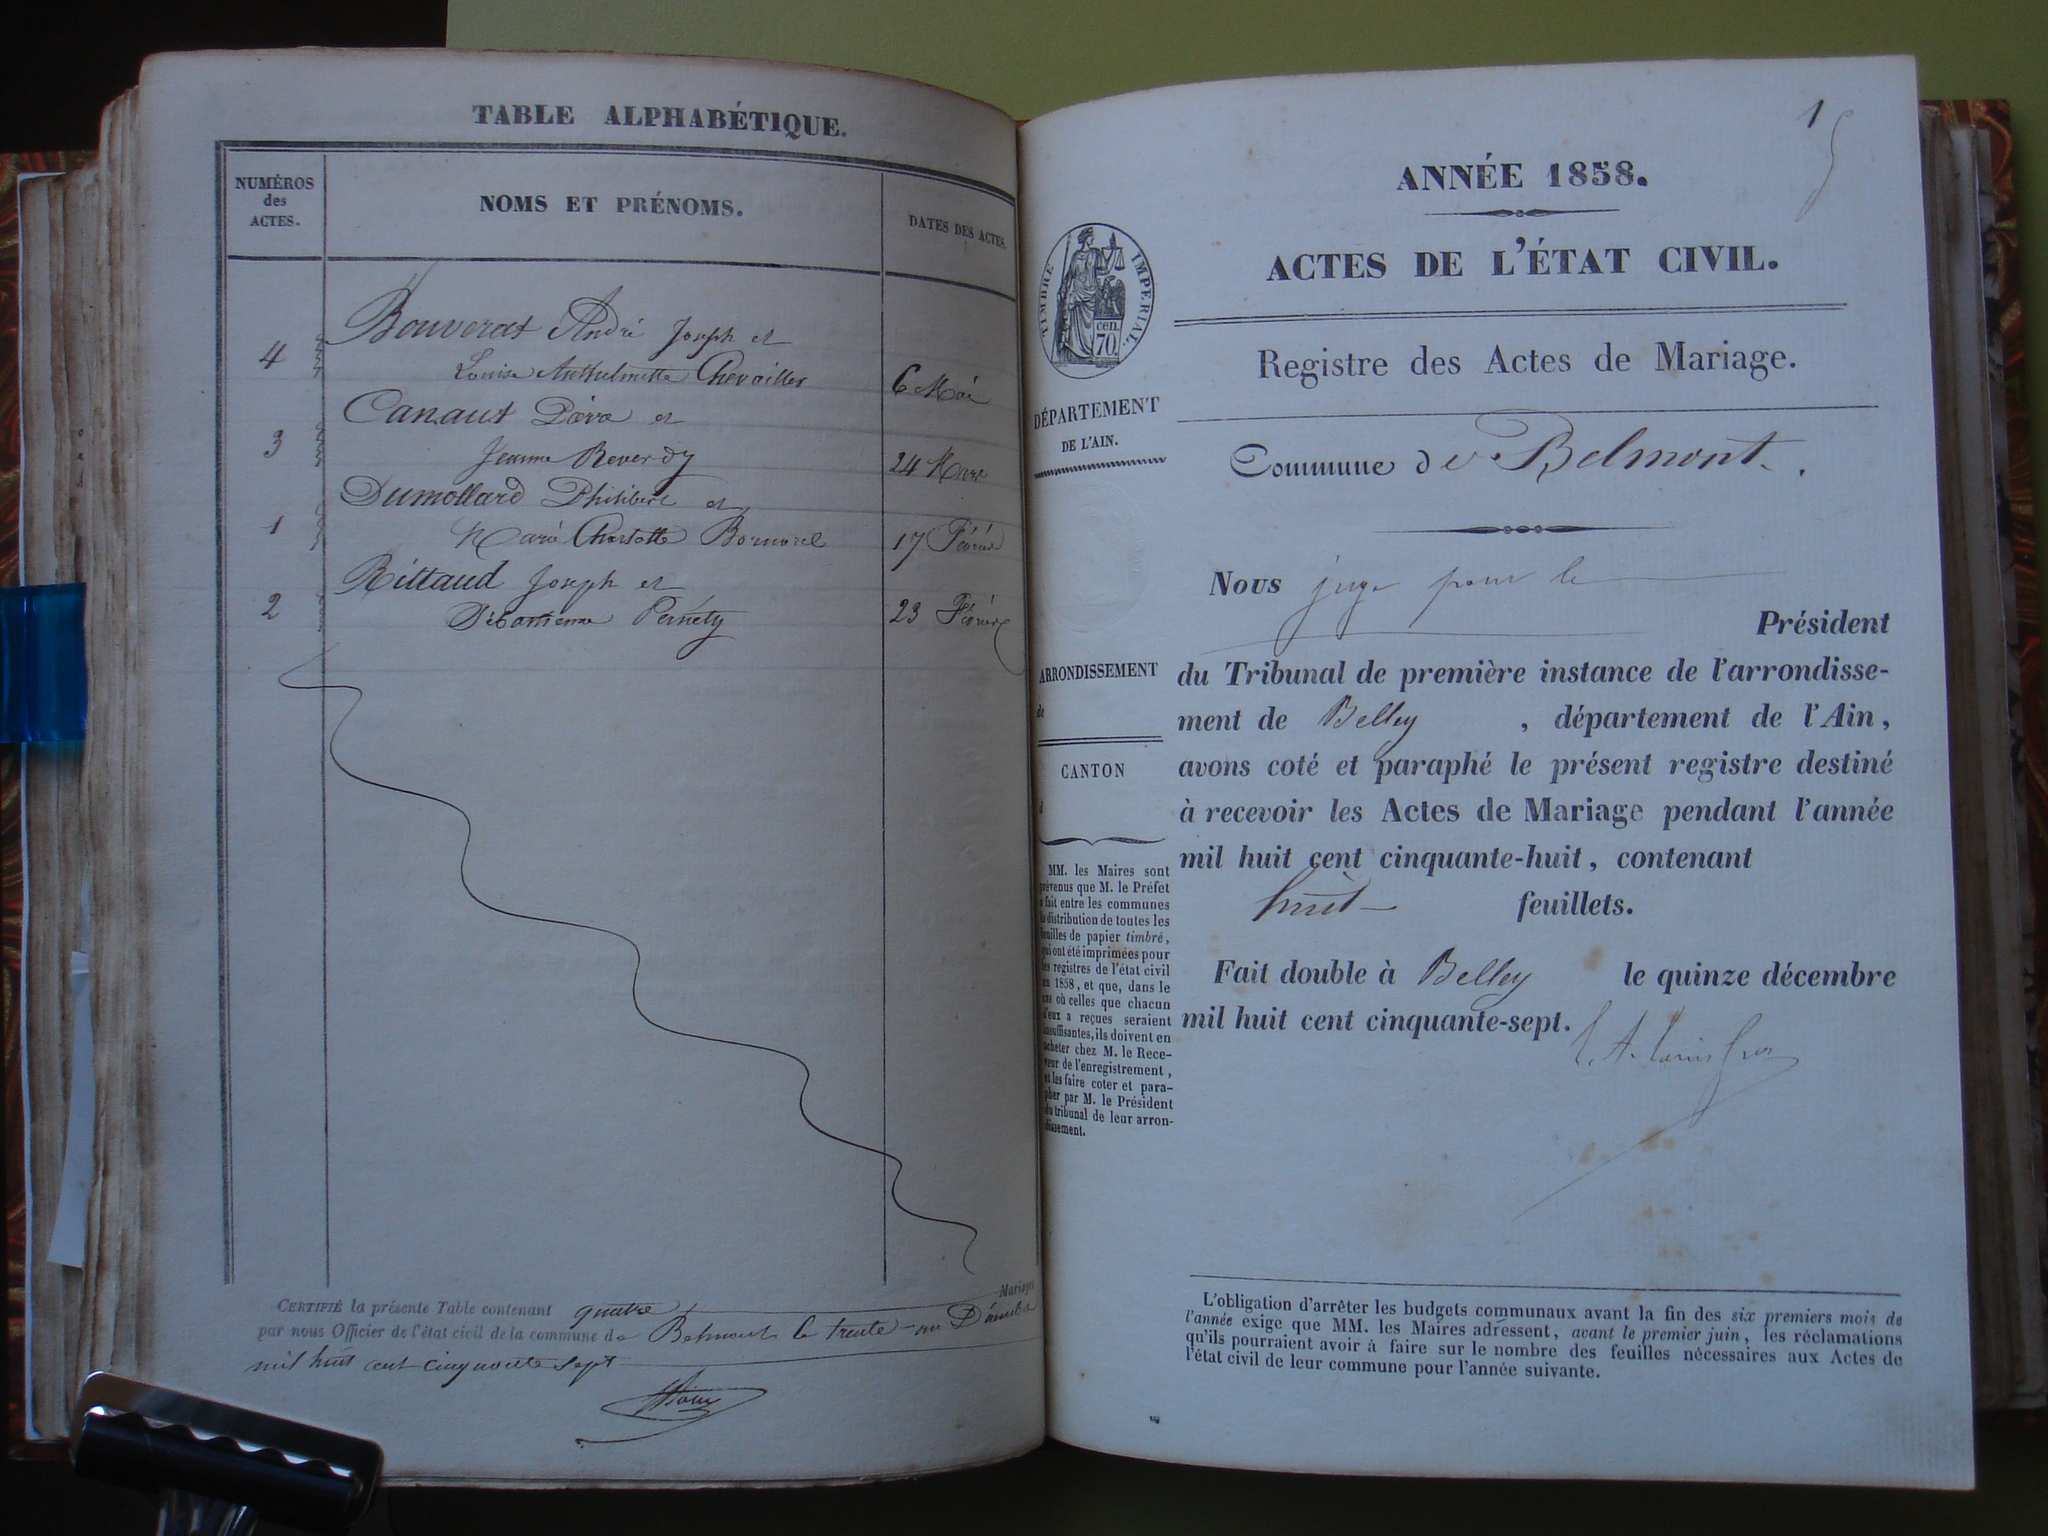 TABLE ALPHABÉTIQUE.
NUMÉROS
des
ACTES.
NOMS ET PRÉNOMS.
DATES DES ACTES.
Bouverat André Joseph et
4 Louise Anthelmette Chevailler 6 Mai
Canaut Pierre et
3 Jeanne Reverdy 24 Mars
Dumollard Philibert et
1 Marie Charlotte 17 Février
Rittaud Joseph et
2 Pernety 23 Février
Mariages
CERTIFIÉ la présente Table contenant quatre
par nous Officier de l'état civil de la commune de Belmont le trente-un Décembre
mil huit cent cinquante sept
Roux
1
ANNÉE 1858.
ACTES DE L'ÉTAT CIVIL.
TIMBRE IMPERIAL.
cen.
70.
Registre des Actes de Mariage.
DÉPARTEMENT
DE L'AIN.
Commune de Belmont.
Nous juge pour le
Président
du Tribunal de première instance de l'arrondisse-
ment de Belley , département de l'Ain,
avons coté et paraphé le présent registre destiné
à recevoir les Actes de Mariage pendant l'année
mil huit cent cinquante-huit, contenant
huit feuillets.
Fait double à Belley le quinze décembre
mil huit cent cinquante-sept.
ARRONDISSEMENT
de
CANTON
d
MM. les Maires sont
prévenus que M. le Préfet
a fait entre les communes
la distribution de toutes les
feuilles de papier timbré,
qui ont été imprimées pour
les registres de l'état civil
en 1858, et que, dans le
cas où celles que chacun
d'eux a reçues seraient
insuffisantes, ils doivent en
acheter chez M. le Rece-
veur de l'enregistrement,
et les faire coter et para-
pher par M. le Président
du tribunal de leur arron-
dissement.
L'obligation d'arrêter les budgets communaux avant la fin des six premiers mois de
l'année exige que MM. les Maires adressent, avant le premier juin, les réclamations
qu'ils pourraient avoir à faire sur le nombre des feuilles nécessaires aux Actes de
l'état civil de leur commune pour l'année suivante.